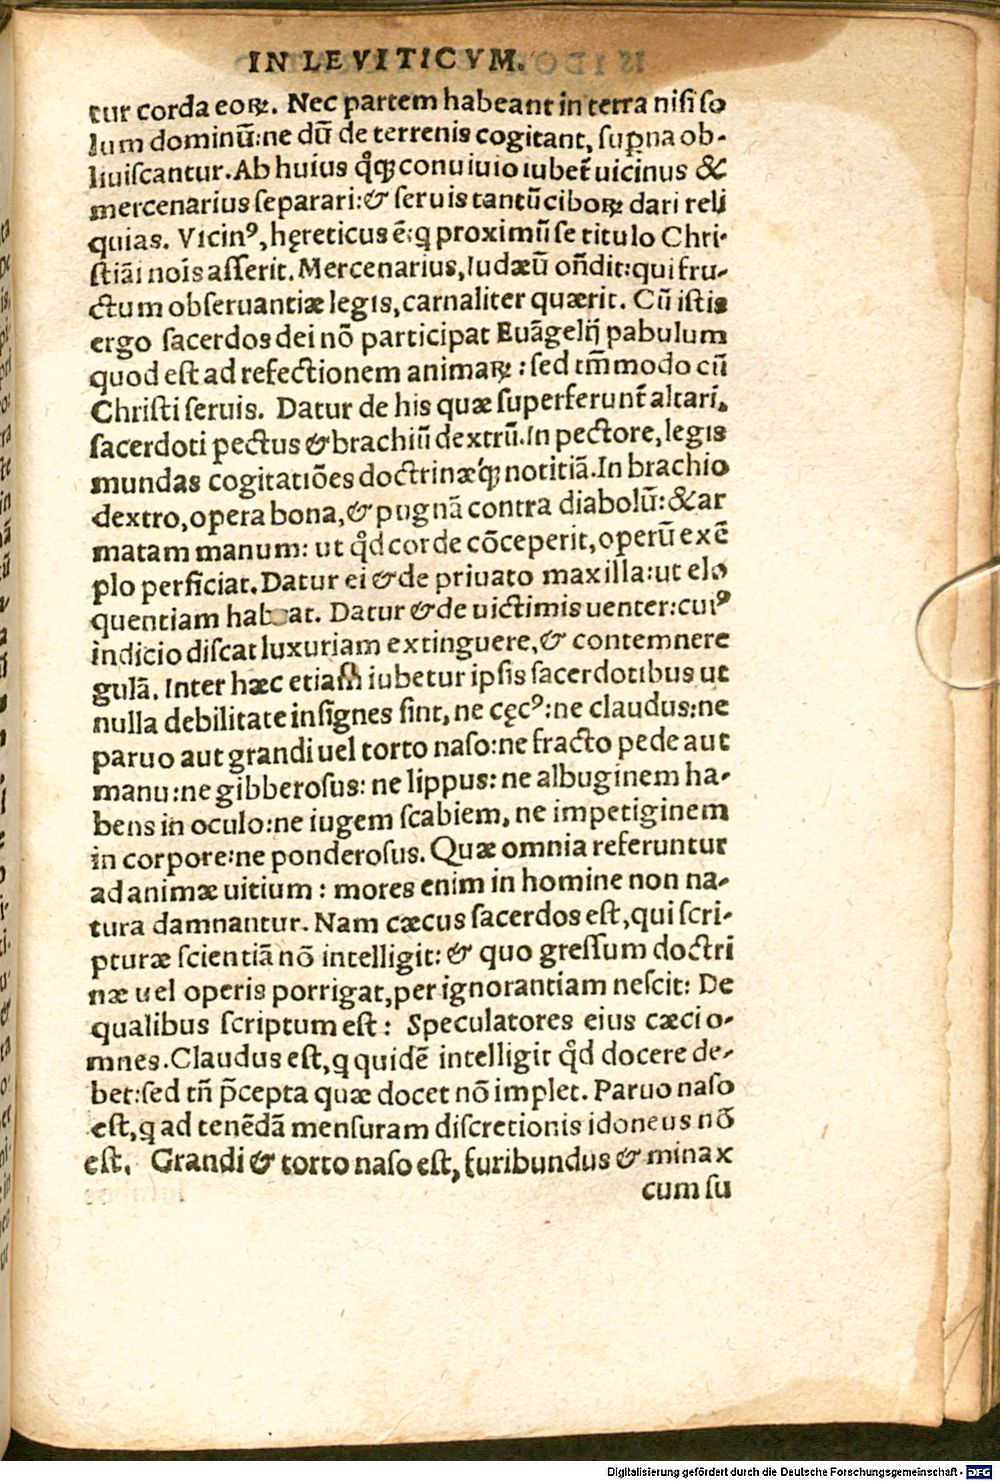 IN LEVITICVM.
tur corda eoꝝ. Nec partem habeant in terra nisi so
lum dominū:ne dū de terrenis cogitant, suꝑna ob-
liuiscantur. Ab huius qͥqꝫ conuiuio iubet̃ uicinus &
mercenarius separari:& seruis tantū ciboꝝ dari reli
quias. Vicinꝰ, hęreticus ē:q proximū se titulo Chri-
stiāi nois asserit. Mercenarius, Iudæū oñdit:qui fru-
ctum obseruantiæ legis, carnaliter quærit. Cū istis
ergo sacerdos dei nō participat Euāgelij pabulum
quod est ad refectionem animaꝝ : sed tm̄modo cū
Christi seruis. Datur de his quæ superferunt̃ altari,
sacerdoti pectus & brachiū dextrū. In pectore, legis
mundas cogitatiões doctrinæqꝫ notitiā. In brachio
dextro, opera bona, & pugnā contra diabolū: & ar
matam manum: ut qͥd corde cōceperit, operū exē
plo perficiat. Datur ei & de priuato maxilla:ut elo
quentiam habeat. Datur & de uictimis uenter:cuiꝰ
indicio discat luxuriam extinguere, & contemnere
gulā. Inter hæc etiam iubetur ipsis sacerdotibus ut
nulla debilitate insignes sint, ne cęcꝰ:ne claudus:ne
paruo aut grandi uel torto naso:ne fracto pede aut
manu:ne gibberosus: ne lippus: ne albuginem ha-
bens in oculo:ne iugem scabiem, ne impetiginem
in corpore:ne ponderosus. Quæ omnia referuntur
ad animæ uitium : mores enim in homine non na-
tura damnantur. Nam cæcus sacerdos est, qui scri-
pturæ scientiā nō intelligit: & quo gressum doctri
næ uel operis porrigat, per ignorantiam nescit: De
qualibus scriptum est : Speculatores eius cæci o-
mnes. Claudus est, q quidē intelligit qͥd docere de-
bet:sed tñ p̄cepta quæ docet nō implet. Paruo naso
est, q ad tenēdā mensuram discretionis idoneus nō
est. Grandi & torto naso est, furibundus & minax
cum su
Digitalisierung gefördert durch die Deutsche Forschungsgemeinschaft - DFG